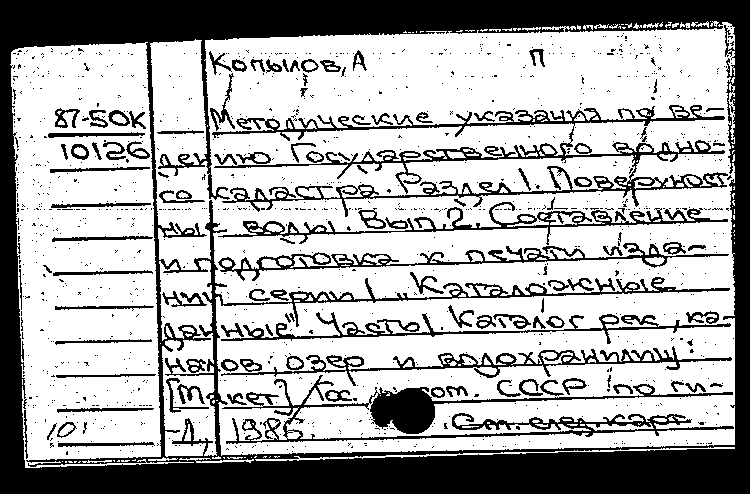 Копылов, А П
87-50К Методические указания по ве-
10126 дению Государственного водно-
го кадастра. Раздел 1. Поверхност
ные воды. Вып. 2. Составление
и подготовка к печати изда-
ний серии 1 „Каталожные
данные". Часть 1. Каталог рек, ка-
налов, озер и водохранилищ:
[Макет] / Гос. ком. СССР по ги-
101 -Л, 1985. См. след. карт.